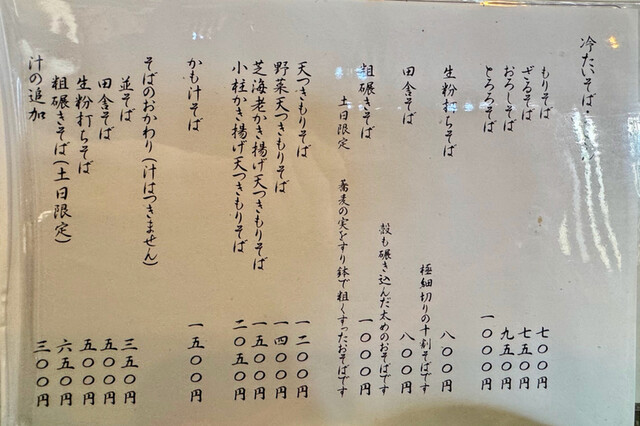 冷たいそば・
もりそば 七〇〇円
ざるそば 七五〇円
おろしそば 九五〇円
とろろそば 一〇〇〇円
生粉打ちそば 八〇〇円
極細切りの十割そばです
田舎そば 八〇〇円
殻も碾き込んだ太めのおそばです
粗碾きそば 一〇〇〇円
土日限定 蕎麦の実をすり鉢で粗くすったおそばです
天つきもりそば 一二〇〇円
野菜天つきもりそば 一四〇〇円
芝海老かき揚げ天つきもりそば 一五〇〇円
小柱かき揚げ天つきもりそば 二〇五〇円
かも汁そば 一五〇〇円
そばのおかわり(汁はつきません)
並そば 三五〇円
田舎そば 五〇〇円
生粉打ちそば 五〇〇円
粗碾きそば(土日限定) 六五〇円
汁の追加 三〇〇円